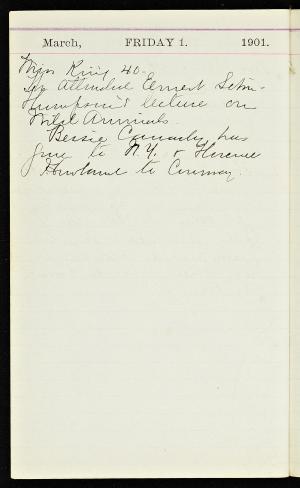 March, FRIDAY 1. 1901.
Miss King 40.
Attended Ernest Seton-
Thompson's lecture on
Wild Animals.
Bessie has
gone to N.Y. & Florence
Howland to Conway.